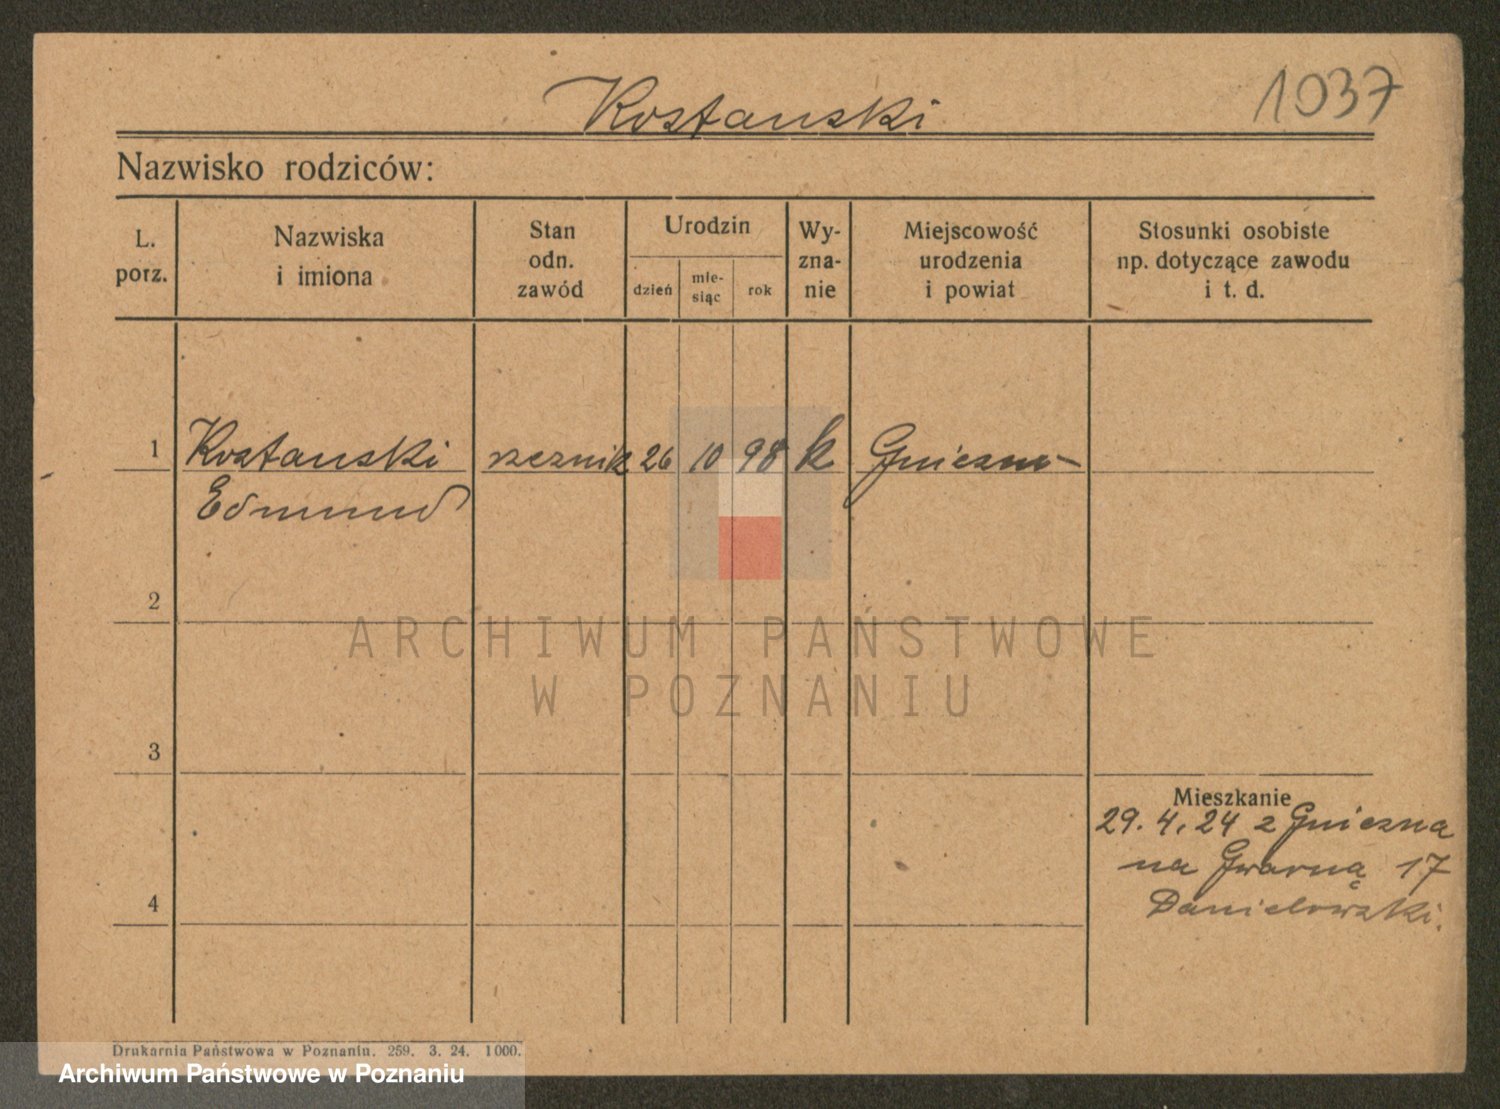 1037
Kostanski
Nazwisko rodziców:
L. porz.
Nazwiska i imiona
Stan odn. zawód
Urodzin
dzień
mie-siąc
rok
Wy-zna-nie
Miejscowość urodzenia i powiat
Stosunki osobiste np. dotyczące zawodu i t. d.
1 Kostanski rzeznik 26 10 98 k Gniezno
Edmund
2
ARCHIWUM PAŃSTWOWE
W POZNANIU
3
Mieszkanie
29. 4. 24 z Gniezna
na Gwarną 17
4 Danielowski.
Drukarnia Państwowa w Poznaniu. 259. 3. 24. 1000.
Archiwum Państwowe w Poznaniu